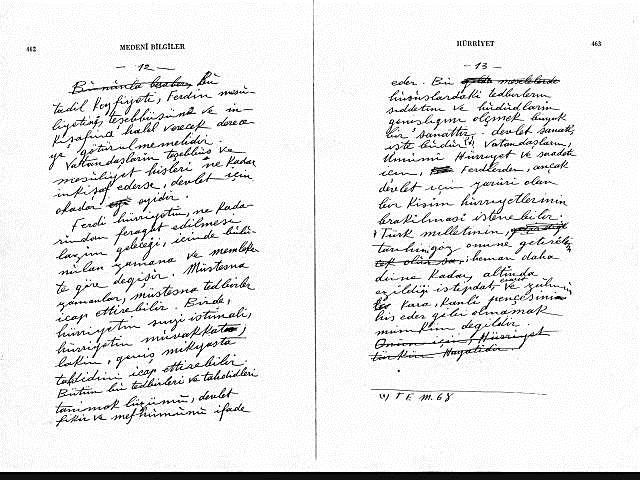 462 MEDENÎ BİLGİLER
— 12 —
Bununla beraber, bu
tadil keyfiyeti, Ferdin mesu-
liyetini, teşebbüsünü ve in-
kişafına halel verecek derece-
ye götürülmemelidir.
Vatandaşların teşebbüs ve
mesuliyet hisleri ne kadar
inkişaf ederse, devlet için
okadar eyidir.
Ferdi hürriyetin, ne kada-
rından feragat edilmesi
lazım geleceği, içinde bulu-
nulan zamana ve memleke-
te göre değişir. Müstesna
zamanlar, müstesna tedbirler
icap ettirebilir. Birde,
hürriyetin suyi istimali,
hürriyetin muvakkata,
lakin, geniş mikyasta
tahdidini icap ettirebilir.
Bütün bu tedbirleri ve tahditleri
tanımak lüzumu, devlet
fikir ve mefhumunu ifade
HÜRRİYET 463
— 13 —
eder. Bu meselelerde
hususlardaki tedbirlerin
şiddetini ve hudutların
genişliğini ölçmek büyük
bir sanattır. devlet sanatı,
işte budur. (1) Vatandaşların,
Umumi Hürriyet ve saadeti
için, Fertlerden, ancak
devlet için zaruri olan
bir kısım hürriyetlerinin
bırakılması istenebilir.
Türk milletinin,
tarihini göz önüne getirelim
hemen daha
düne kadar, altında
ezildiği istibdat, ve zulmün
kara, kanlı pençesini
his eder gibi olmamak
mümkün değildir.
Onun için, Hürriyet
türkün Hayatıdır.
(1) T E M. 68